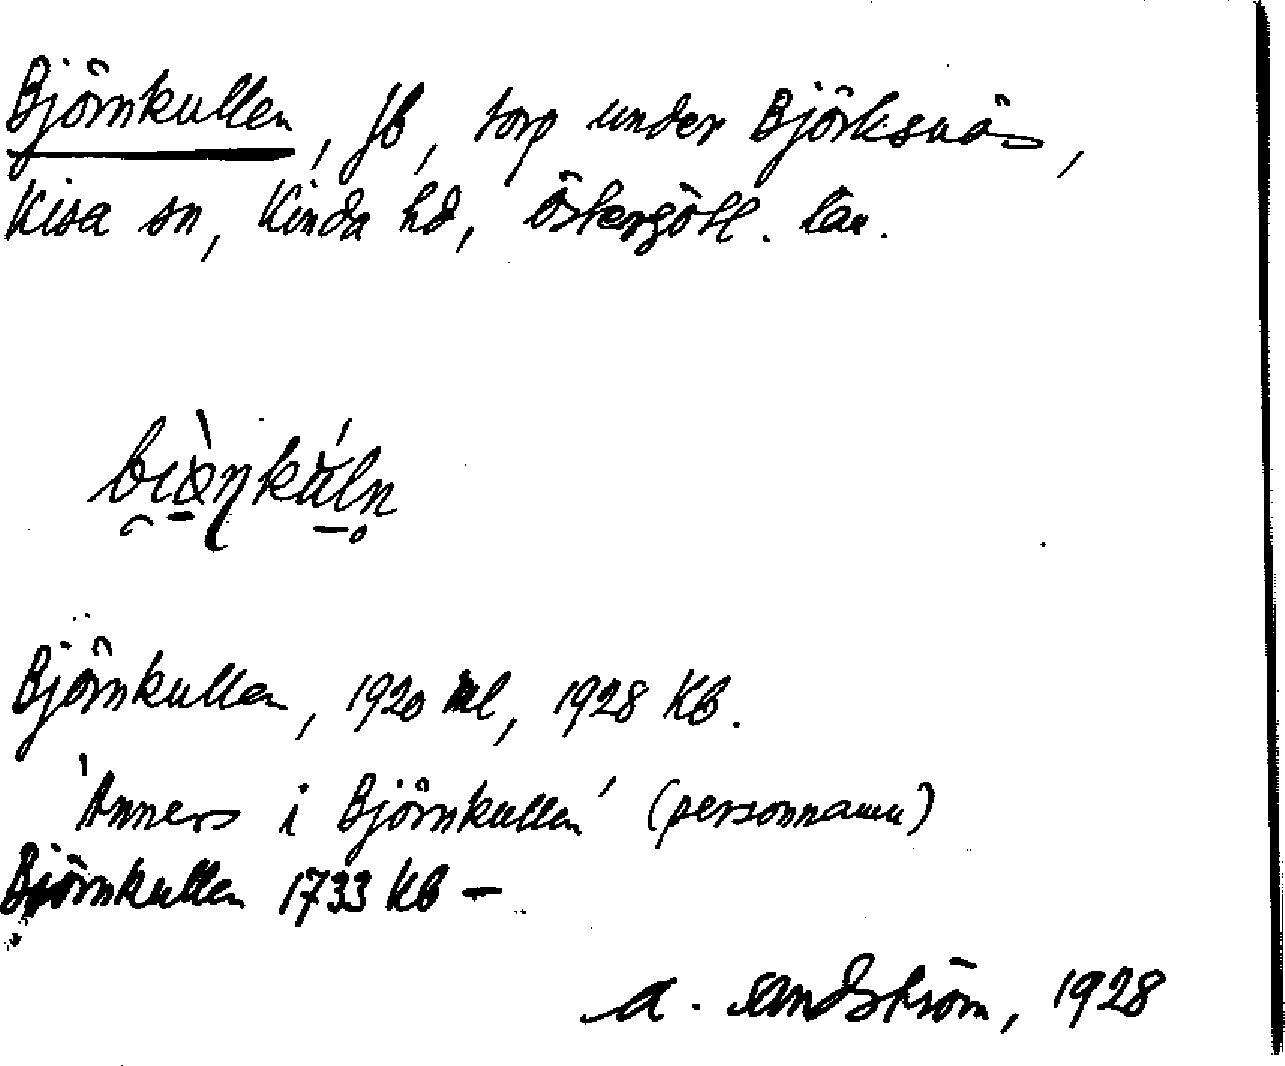 Björnkullen, fb, torp under Björksnäs,
Kisa sn, Kinda hd, Östergötl. län.
Björnkullen, 1920 Ml, 1928 Kb.
'Anners i Björnkullen' (personnamn)
Björnkullen 1733 Kb —
A. Sandström, 1928